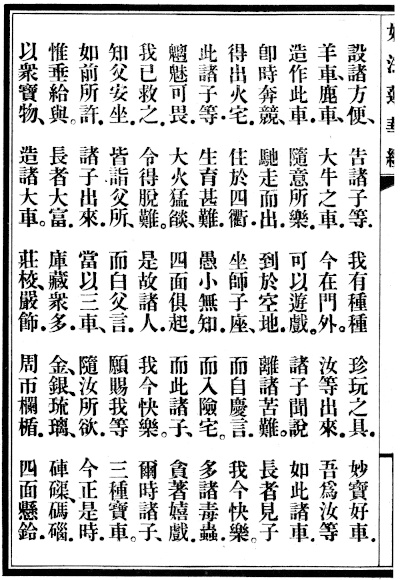 妙法蓮華經
設諸方便、告諸子等．我有種種珍玩之具．妙寶好車．
羊車、鹿車、大牛之車．今在門外。汝等出來．吾爲汝等
造作此車．隨意所樂．可以遊戲。諸子聞說如此諸車．
卽時奔競．馳走而出．到於空地．離諸苦難。長者見子
得出火宅．住於四衢．坐師子座、而自慶言．我今快樂．
此諸子等．生育甚難．愚小無知．而入險宅．多諸毒蟲．
魑魅可畏．大火猛燄．四面俱起．而此諸子、貪著嬉戲．
我已救之．令得脫難．是故諸人．我今快樂。爾時諸子、
知父安坐．皆詣父所、而白父言．願賜我等三種寶車。
如前所許．諸子出來．當以三車、隨汝所欲．今正是時．
惟垂給與。長者大富．庫藏衆多．金、銀、琉璃、硨磲、碼碯、
以衆寶物、造諸大車。莊校嚴飾．周帀欄楯．四面懸鈴．